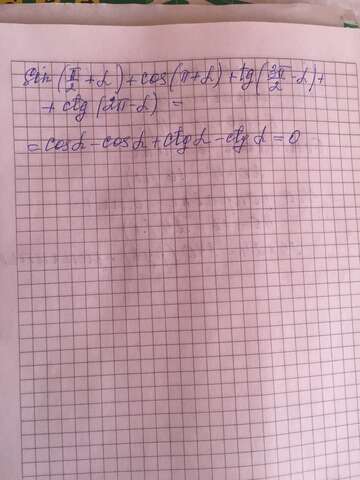 Sin(π/2+α)+cos(π+α)+tg(3π/2-α)+
+ctg(2π-α) =
=cosα-cosα+ctgα-ctgα=0